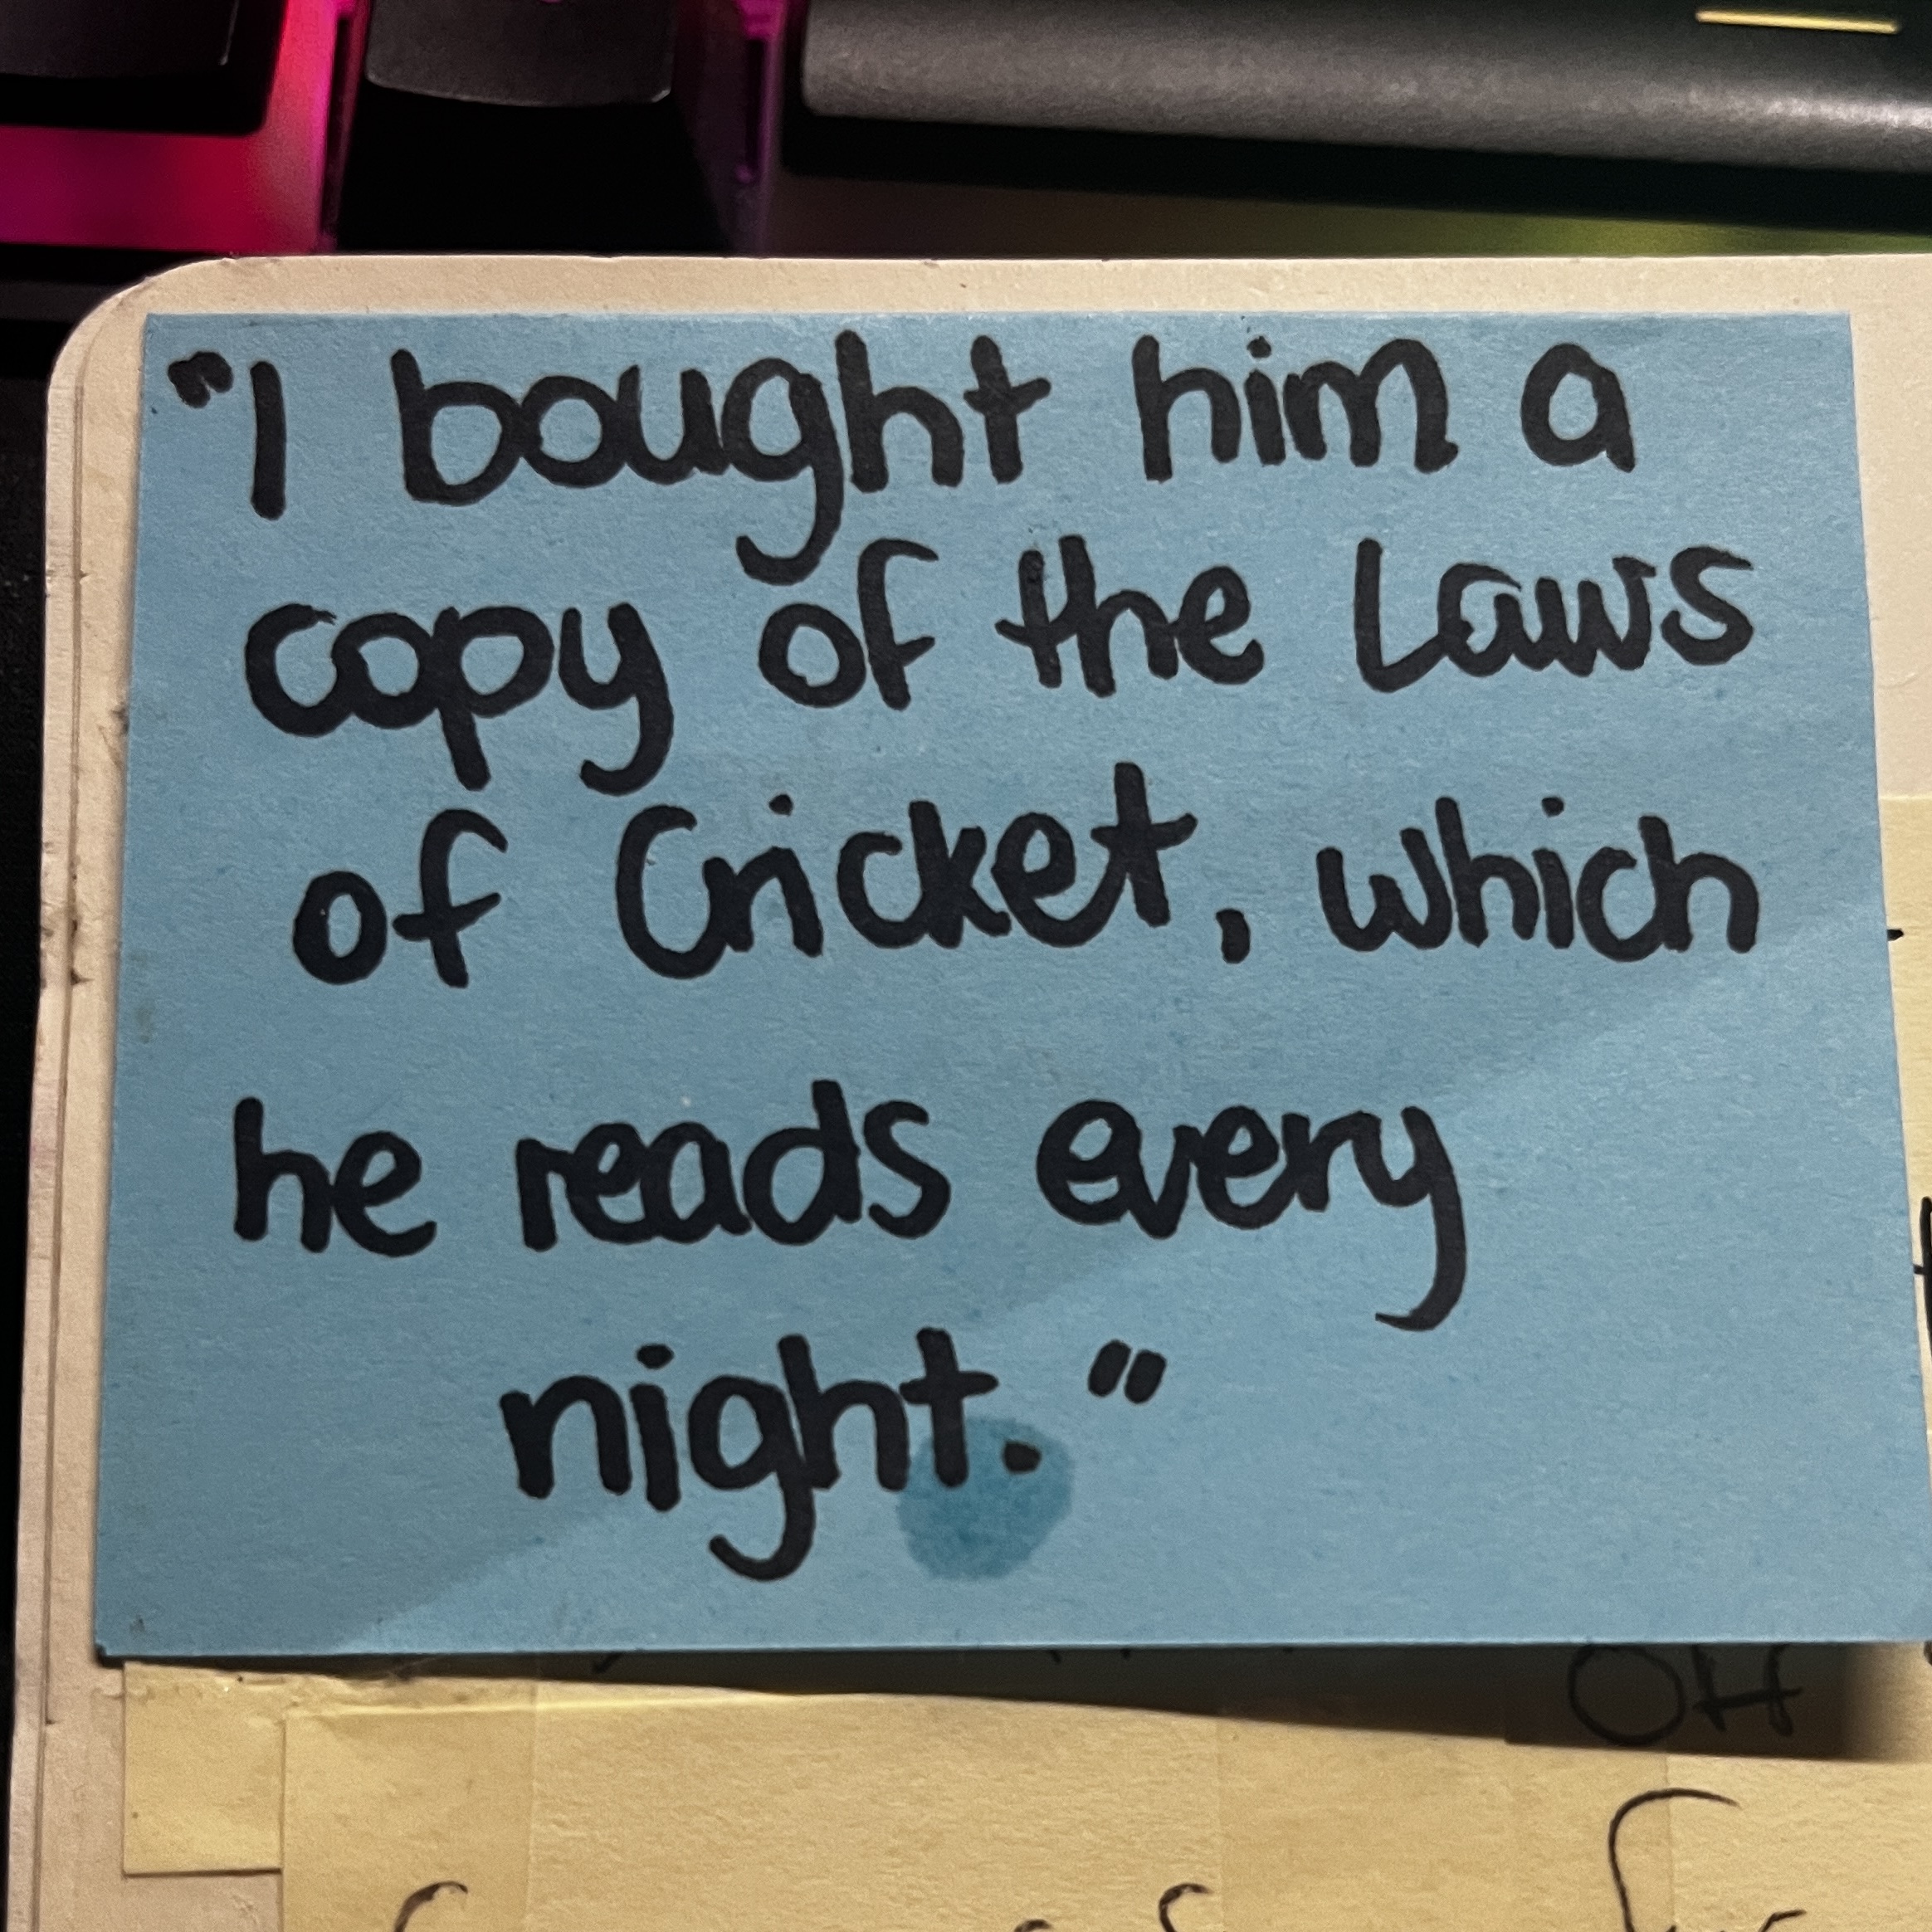 "I bought him a
copy of the Laws
of Cricket, which
he reads every
night."